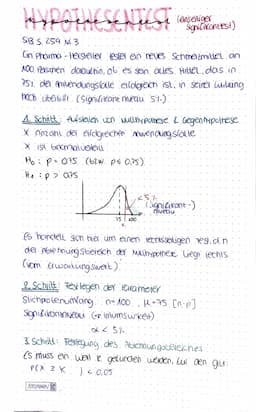 HYPOTHESENTEST (einseitiger Signifikanztest)
SB S. 259 N. 3
Ein Pharma-Hersteller testet ein neues Schmerzmittel an
100 Personen daraufhin, ob es sein altes Mittel, das in
75% der Anwendungsfälle erfolgreich ist, in seiner Wirkung
noch übertrifft (Signifikanzniveau 5%)
1. Schritt: Aufstellen von Nullhypothese & Gegenhypothese
X: Anzahl der erfolgreichen Anwendungsfälle
X ist binomialverteilt
H₀: p = 0,75 (bzw. p ≤ 0,75)
H₁: p > 0,75
< 5%
(Signifikanz-)
niveau
75
100
Es handelt sich hier um einen rechtsseitigen Test, d.h
der Ablehnungsbereich der Nullhypothese liegt rechts
(vom Erwartungswert)
2. Schritt: Festlegen der Parameter
Stichprobenumfang: n = 100, μ = 75 [n·p]
Signifikanzniveau
α < 5%
3. Schritt: Festlegung des Ablehnungsbereiches
Es muss ein Wert k gefunden werden, für den gilt:
P(X ≥ k ) < 0,05